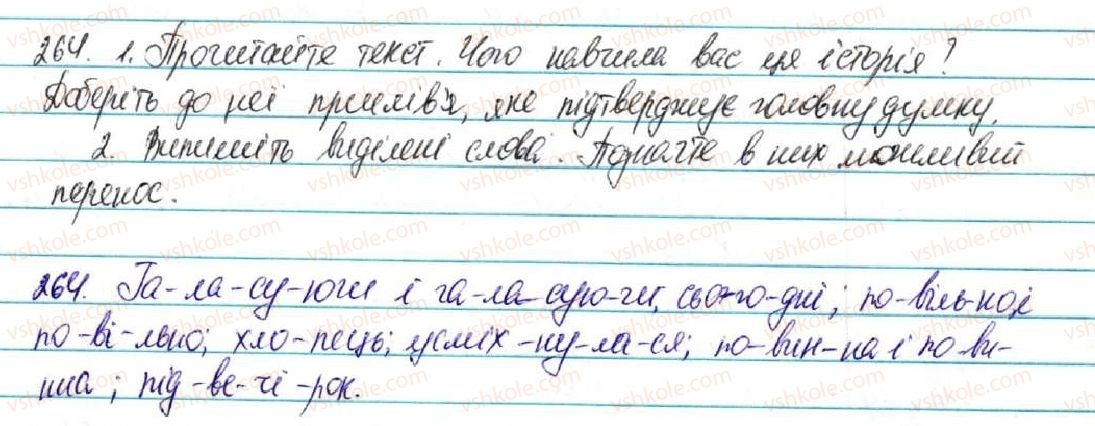 264. 1. Прочитайте текст. Чого навчила вас ця історія?
Доберіть до неї прислів'я, яке підтверджує головну думку.
2. Випишіть виділені слова. Позначте в них можливий
перенос.
264. Га-ла-су-ючи і га-ла-сую-чи, сьо-го-дні; по-віль-но і
по-ві-льно; хло-пець; усміх-ну-ла-ся; по-вин-на і по-ви-
нна; під-ве-чі-рок.